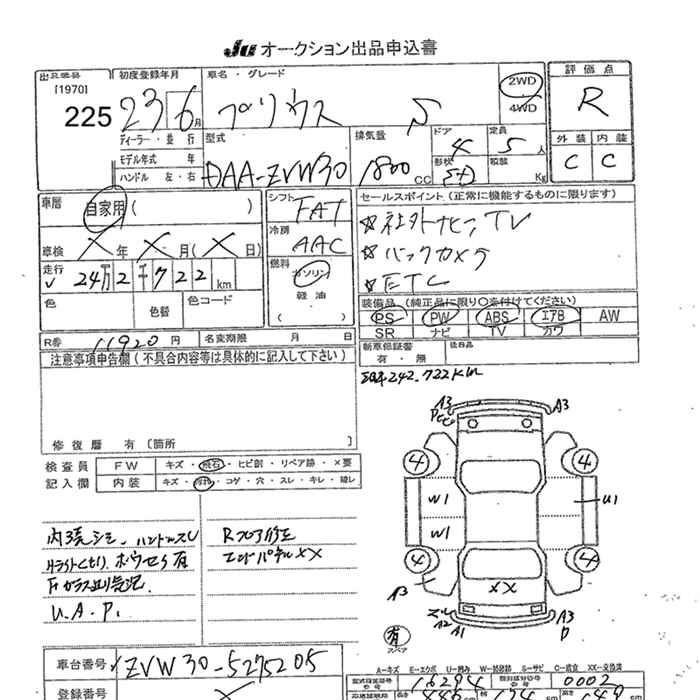 JU オークション出品申込書
[1970]
225
初度登録年月
23 6月
ディーラー・並 行
モデル年式 年
ハンドル 左・右
車名・グレード
プリウス S
2WD
4WD
型式
DAA-ZVW30
排気量
1800 CC
ドア
4
定員
5 人
形状
積載
Kg
評価点
R
外装 内装
C C
車歴
自家用( )
車検 X 年 X 月( X 日)
走行
24万2千722 km
色
色替
色コード
シフト
FAT
冷房
AAC
燃料
ガソリン
軽油
( )
セールスポイント (正常に機能するものに限ります)
☆社外ナビ, TV
☆バックカメラ
☆ETC
装備品 (純正品に限り○を付けてください)
PS PW ABS エアB AW
SR ナビ TV カワ
新車保証書
有・無
後日品
R券 11920 円
名変期限 月 日
注意事項申告欄 (不具合内容等は具体的に記入して下さい)
242,722km
修復歴 有 〔箇所 〕
検査員
記入欄
FW キズ・飛石・ヒビ割・リペア跡・×要
内装 キズ・汚れ・コゲ・穴・スレ・キレ・破レ
内張シミ. ハンドルスレ
Fガラス飛石.
U.A.P.
Rフロア修正
エンドパネルXX
A3
A3
4
4
W1
U1
W1
4
4
A3
XX
A2
A1
A3
有
スペア
車台番号 ZVW30-5275205
登録番号
A-キズ E-エクボ U-凹み W-補修跡 S-サビ C-腐食 XX-交換済
型式指定番号
16294
類別区分番号
0002